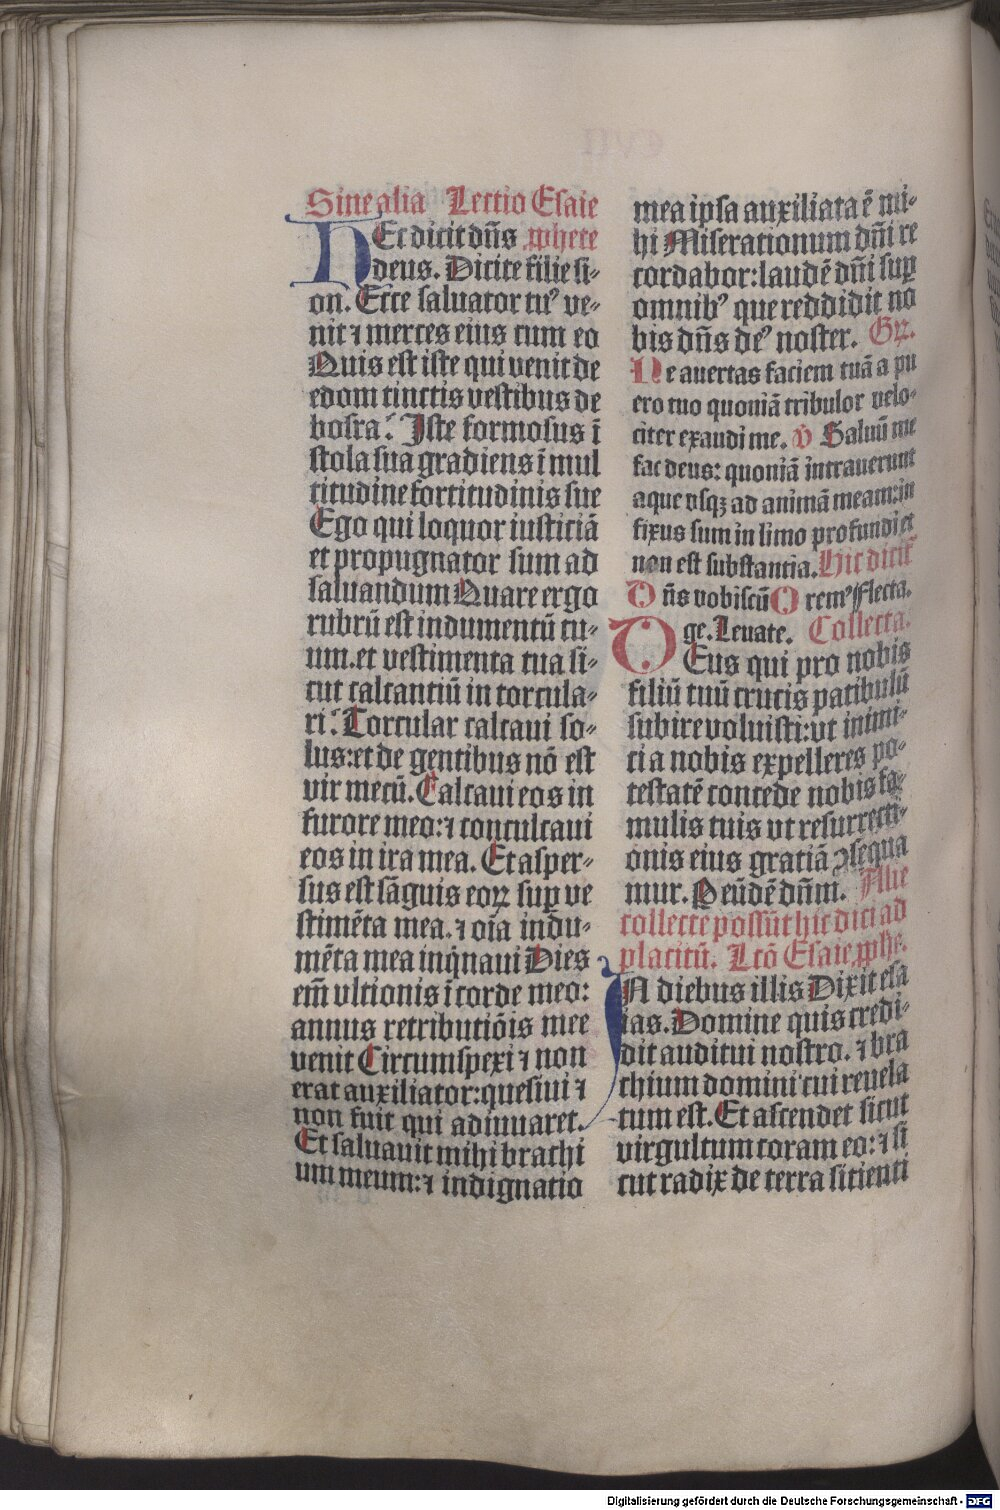 Sine alia Lectio Esaie
HEc dicit dn̄s ꝓphete
deus. Dicite filie si-
on. Ecce saluator tuꝰ ve-
nit ⁊ merces eius cum eo
Quis est iste qui venit de
edom tinctis vestibus de
bosra? Iste formosus ī
stola sua gradiens ī mul
titudine fortitudinis sue
Ego qui loquor iusticiā
et propugnator sum ad
saluandum Quare ergo
rubrū est indumentū tu-
um. et vestimenta tua si-
cut calcantiū in torcula-
ri? Torcular calcaui so-
lus: et de gentibus nō est
vir mecū. Calcaui eos in
furore meo: ⁊ conculcaui
eos in ira mea. Et asper-
sus est sāguis eoꝝ suꝑ ve
stimēta mea. ⁊ oīa indu-
mēta mea inq̇naui Dies
em̄ vltionis ī corde meo:
annus retributiōis mee
venit Circumspexi ⁊ non
erat auxiliator: quesiui ⁊
non fuit qui adiuuaret.
Et saluauit mihi brachi
um meum: ⁊ indignatio
mea ipsa auxiliata ē mi-
hi Miserationum dn̄i re
cordabor: laudē dn̄i suꝑ
omnibꝰ que reddidit no
bis dn̄s deꝰ noster. Gꝝ.
Ne auertas faciem tuā a pu
ero tuo quoniā tribulor velo-
citer exaudi me. v̄ Saluū me
fac deus: quoniā intrauerunt
aque vsqꝫ ad animā meam: in
fixus sum in limo profundi et
non est substantia. Hic dicit᷑
Dn̄s vobiscū Oremꝰ Flecta.
ge. Leuate. Collecta.
DEus qui pro nobis
filiū tuū crucis patibulū
subire voluisti: vt inimi-
ci a nobis expelleres po-
testatē concede nobis fa-
mulis tuis vt resurrecti-
onis eius gratiā ꝯsequa
mur. P eūdē dn̄m. Alie
collecte possūt hic dici ad
placitū. Lcō Esaie ꝓphe.
IN diebus illis Dixit esa
ias. Domine quis credi-
dit auditui nostro. ⁊ bra
chium domini cui reuela
tum est. Et ascendet sicut
virgultum coram eo: ⁊ si
cut radix de terra sitienti
Digitalisierung gefördert durch die Deutsche Forschungsgemeinschaft - DFG